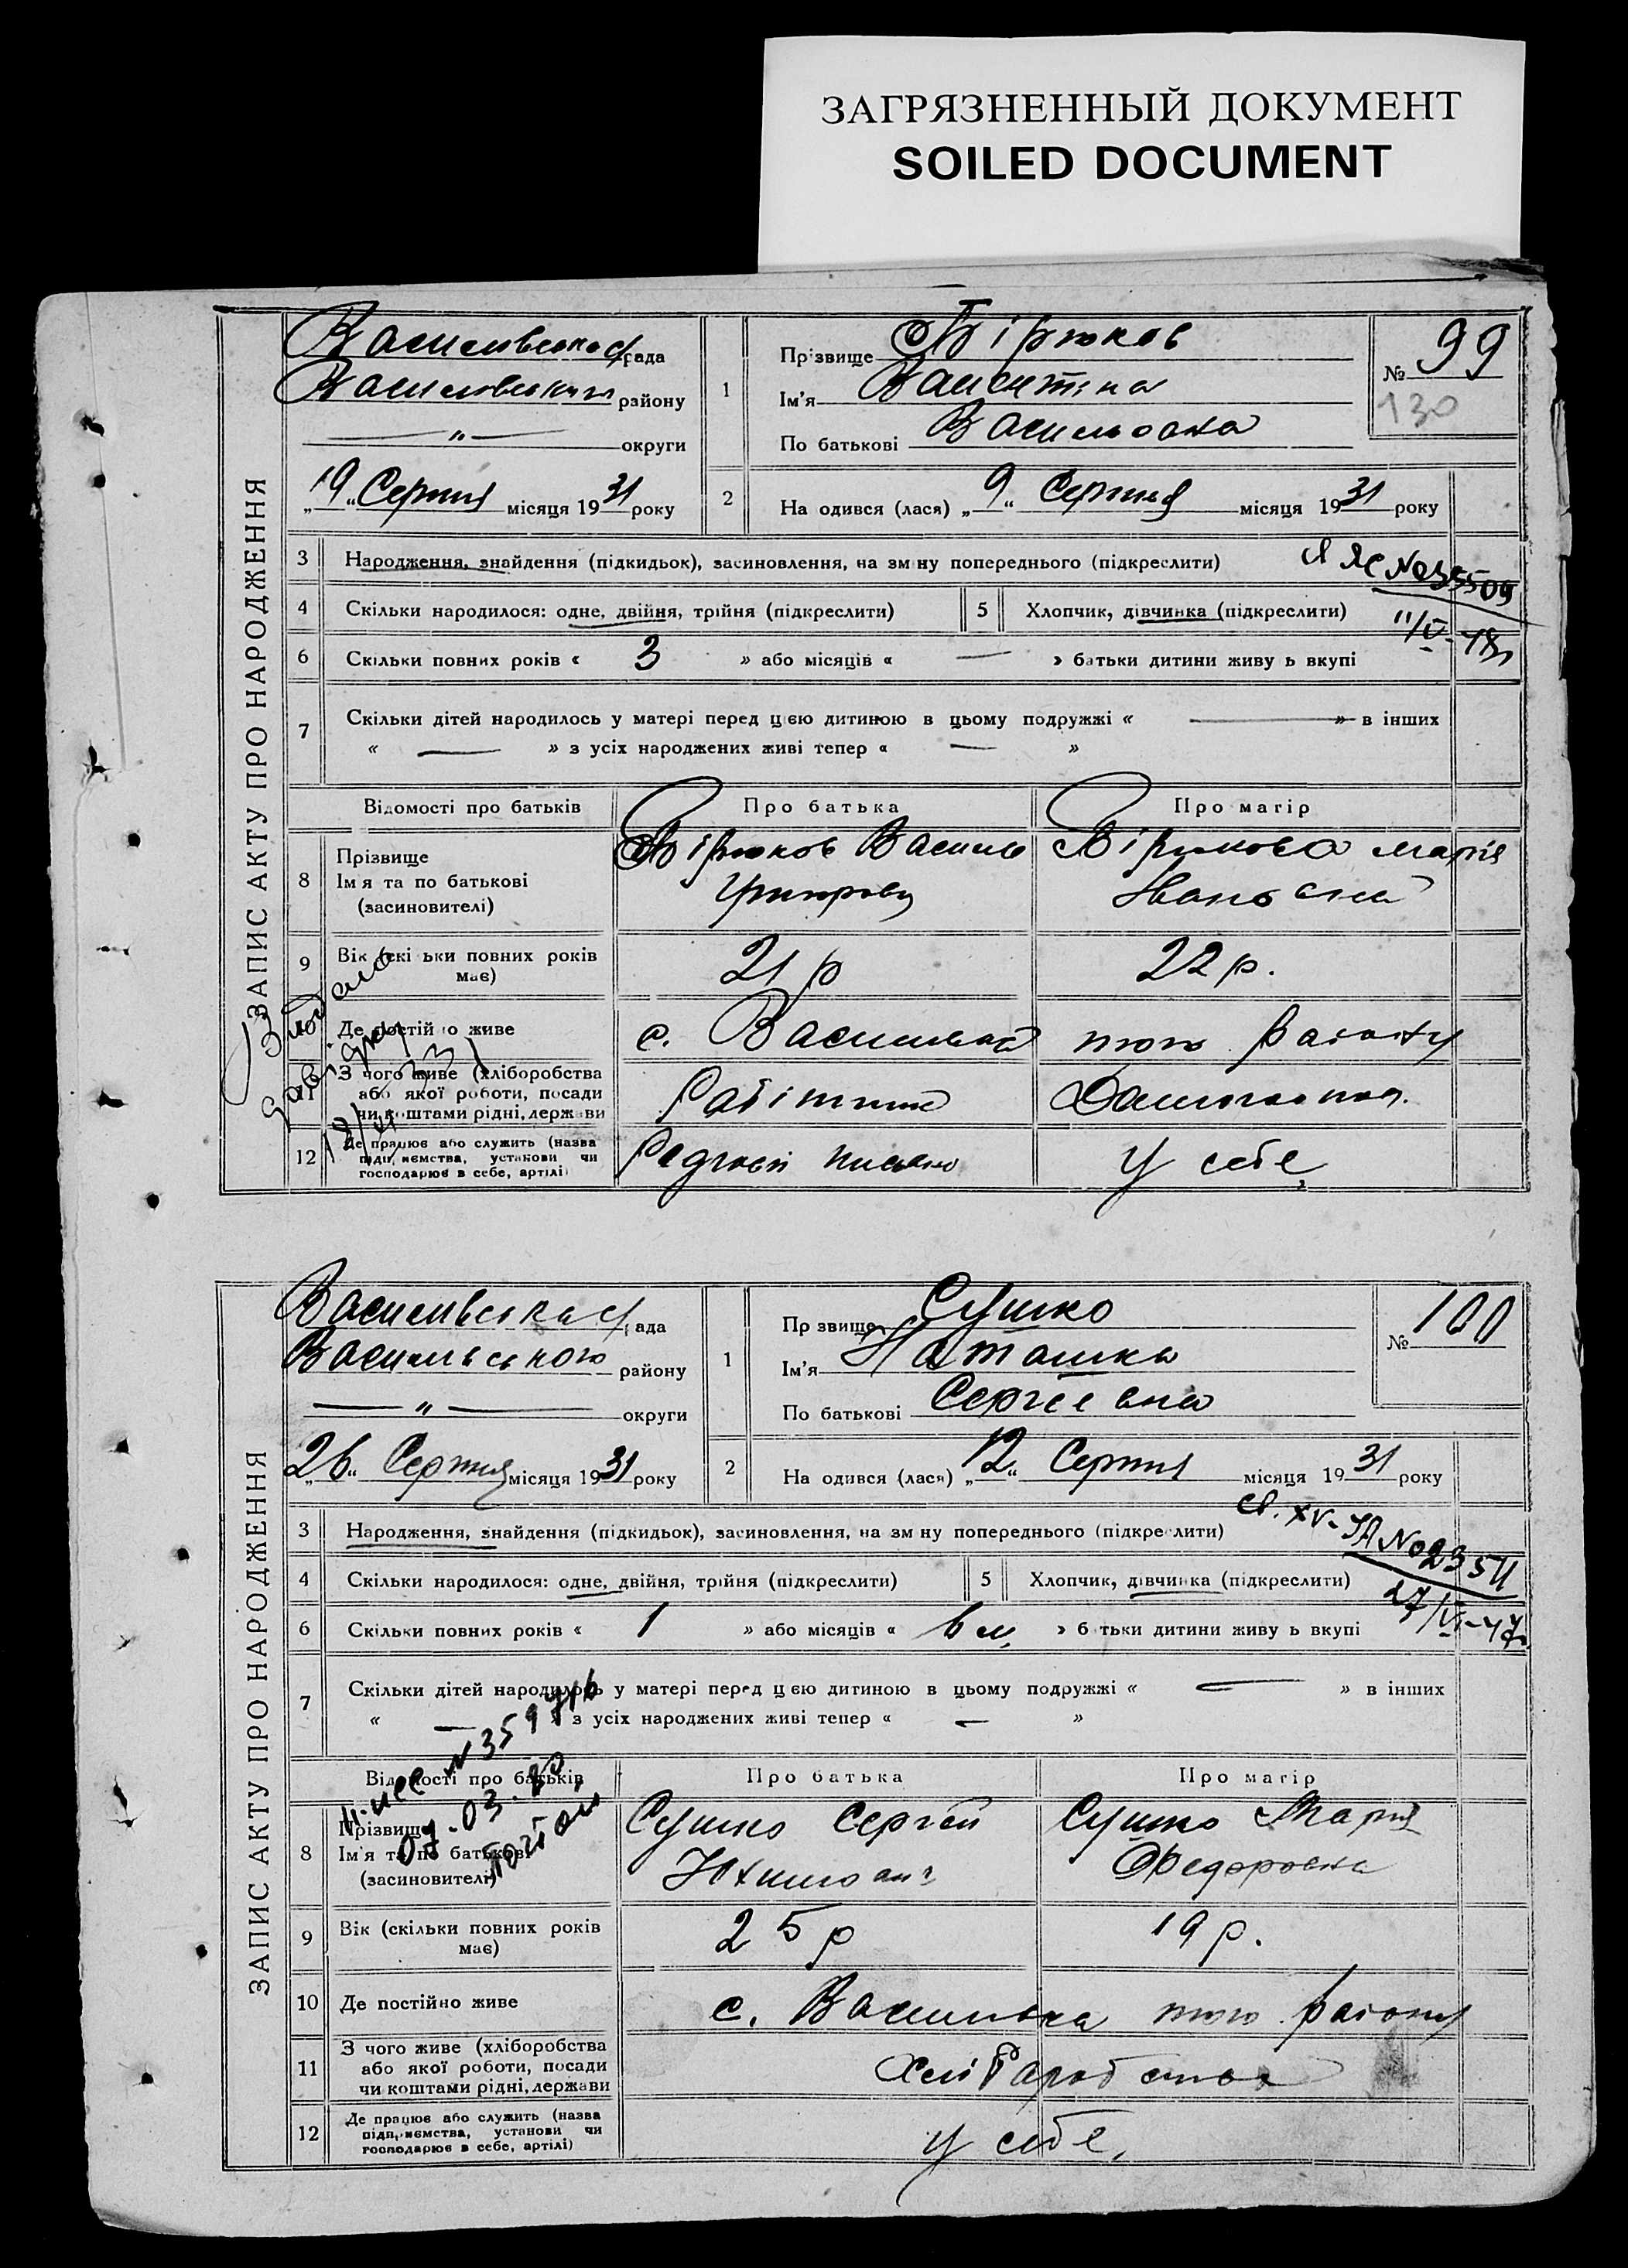 ЗАГРЯЗНЕННЫЙ ДОКУМЕНТ
SOILED DOCUMENT
ЗАПИС АКТУ ПРО НАРОДЖЕННЯ
Василівська с/рада
Василівського району
— " — округи
"19" Серпня місяця 1931 року
1
Прізвище Бірюков
Ім'я Валентина
По батькові Васильовна
№ 99
130
2
На одився (лася) "9" Серпня місяця 1931 року
3 Народження, знайдення (підкидьок), засиновлення, на зм ну попереднього (підкреслити)
№ 35509
11/V-48
4 Скільки народилося: одне, двійня, трійня (підкреслити)
5 Хлопчик, дівчинка (підкреслити)
6 Скільки повних років « 3 » або місяців « — » батьки дитини живу ь вкупі
7 Скільки дітей народилось у матері перед цією дитиною в цьому подружжі « — » в інших
« — » з усіх народжених живі тепер « — »
Відомості про батьків
Про батька
Про матір
8 Прізвище
Ім я та по батькові
(засиновителі)
Бірюков Василь
Бірюкова Марія
Івановна
9 Вік (скі ьки повних років
має)
21 р
22 р.
Де постій о живе
с. Василівка того району
З чого живе (хліборобства
або якої роботи, посади
чи коштами рідні, держ ви
Робітник
Домогоспод.
12 Де працює або служить (назва
підп, иємства, установи чи
господарює в себе, артілі)
у себе,
ЗАПИС АКТУ ПРО НАРОДЖЕННЯ
Василівська с/рада
Василівського району
— " — округи
"26" Серпня місяця 1931 року
1
Пр звище Сушко
Ім'я Наташка
По батькові Сергеевна
№ 100
2
На одився (лася) "12" Серпня місяця 1931 року
3 Народження, знайдення (підкидьок), засиновлення, на зм ну попереднього (підкреслити)
27/VI-47
4 Скільки народилося: одне, двійня, трійня (підкреслити)
5 Хлопчик, дівчинка (підкреслити)
6 Скільки повних років « 1 » або місяців « 6 м. » б тьки дитини живу ь вкупі
7 Скільки дітей народилось у матері перед цією дитиною в цьому подружжі « — » в інших
« — » з усіх народжених живі тепер « — »
Відомості про батьків
Про батька
Про матір
8 Прізвище
Ім'я та по батькові
(засиновителі)
Сушко Сергей
Сушко Марія
Федоровна
9 Вік (скільки повних років
має)
25 р
19 р.
10 Де постійно живе
с. Василівка того району
11 З чого живе (хліборобства
або якої роботи, посади
чи коштами рідні, держави
Хліборобство
12 Де працює або служить (назва
підприємства, установи чи
господарює в себе, артілі)
у себе,